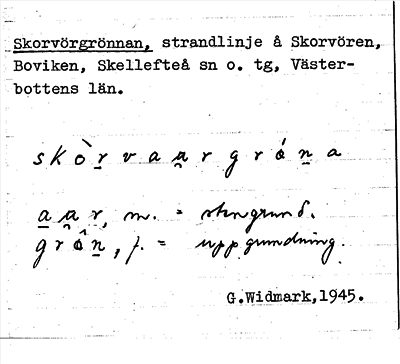 Skorvörgrönnan, strandlinje å Skorvören,
Boviken, Skellefteå sn o. tg, Väster-
bottens län.
skò̱rvaa̱rgróṉa
a̱a̱r, m. = stengrund.
grôṉ, f. = uppgrundning.
G.Widmark,1945.